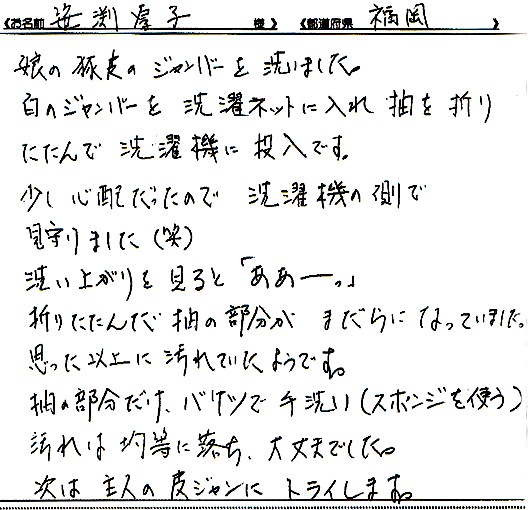 《お名前 笹渕厚子 様》《都道府県 福岡 》
娘の豚皮のジャンバーを洗いました。
白のジャンバーを 洗濯ネットに入れ 袖を折り
たたんで 洗濯機に投入です。
少し心配だったので 洗濯機の側で
見守りました(笑)
洗い上がりを見ると「ああー。」
折りたたんだ袖の部分が まだらになっていました。
思った以上に汚れていたようです。
袖の部分だけ、バケツで手洗い(スポンジを使う)
汚れは均等に落ち、大丈夫でした。
次は主人の皮ジャンにトライします。